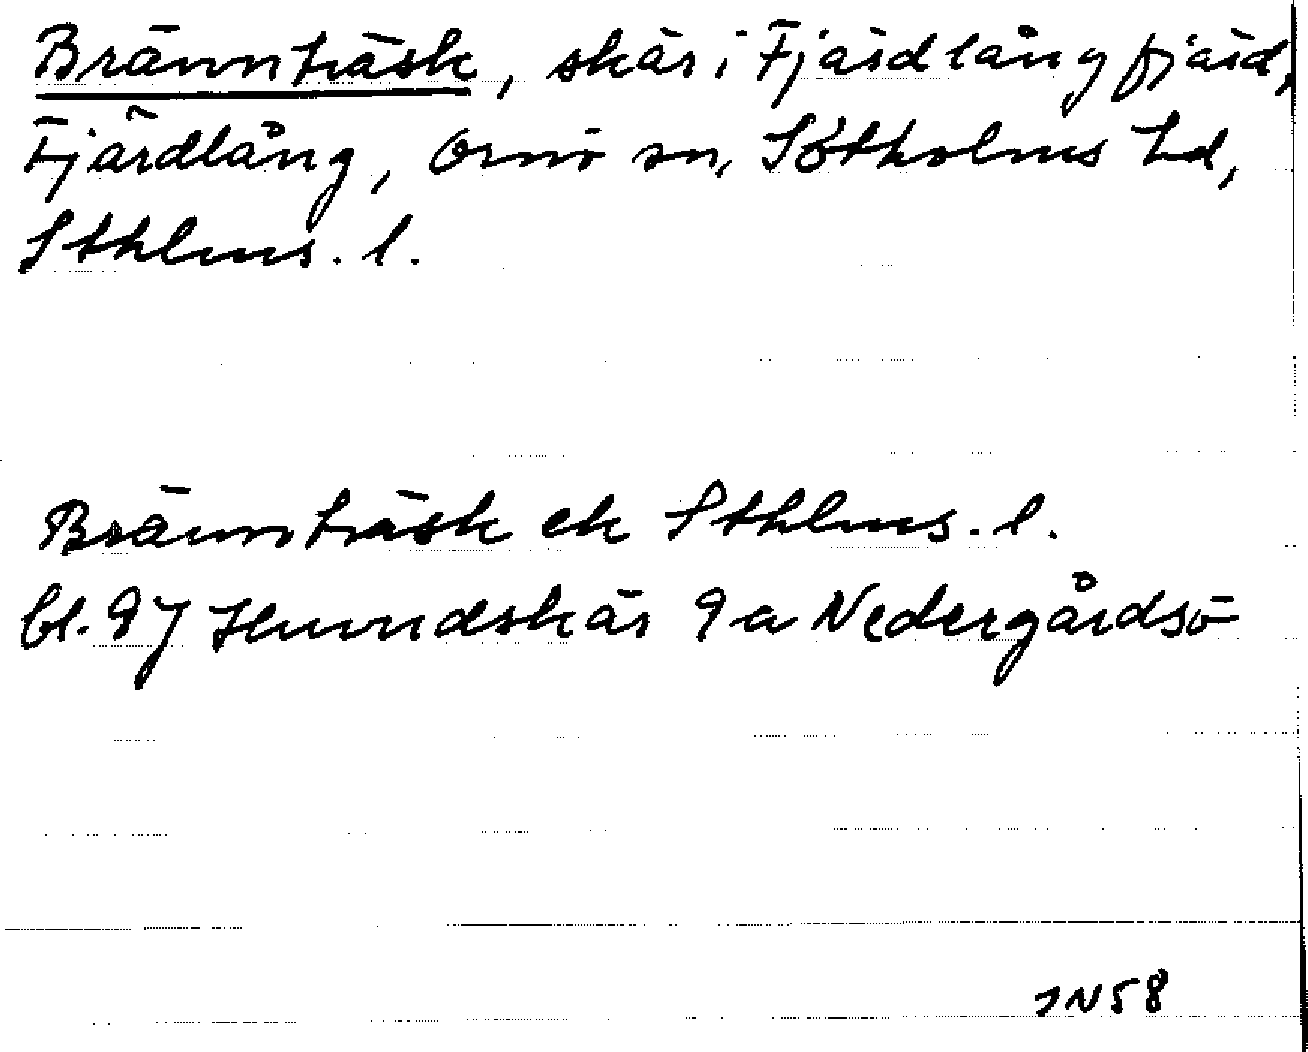 Brännträsk, skär i Fjärdlång fjärd,
Fjärdlång, Ornö sn, Sotholms hd,
Sthlms. l.
Brännträsk ek Sthlms. l.
bl. 97 Hundskär 9a Nedergårdsö
JN58